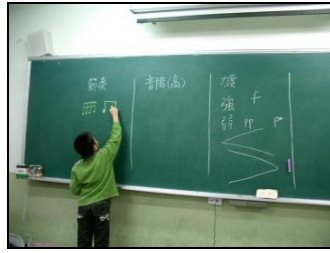 節奏
音階(高)
強 f
弱 pp